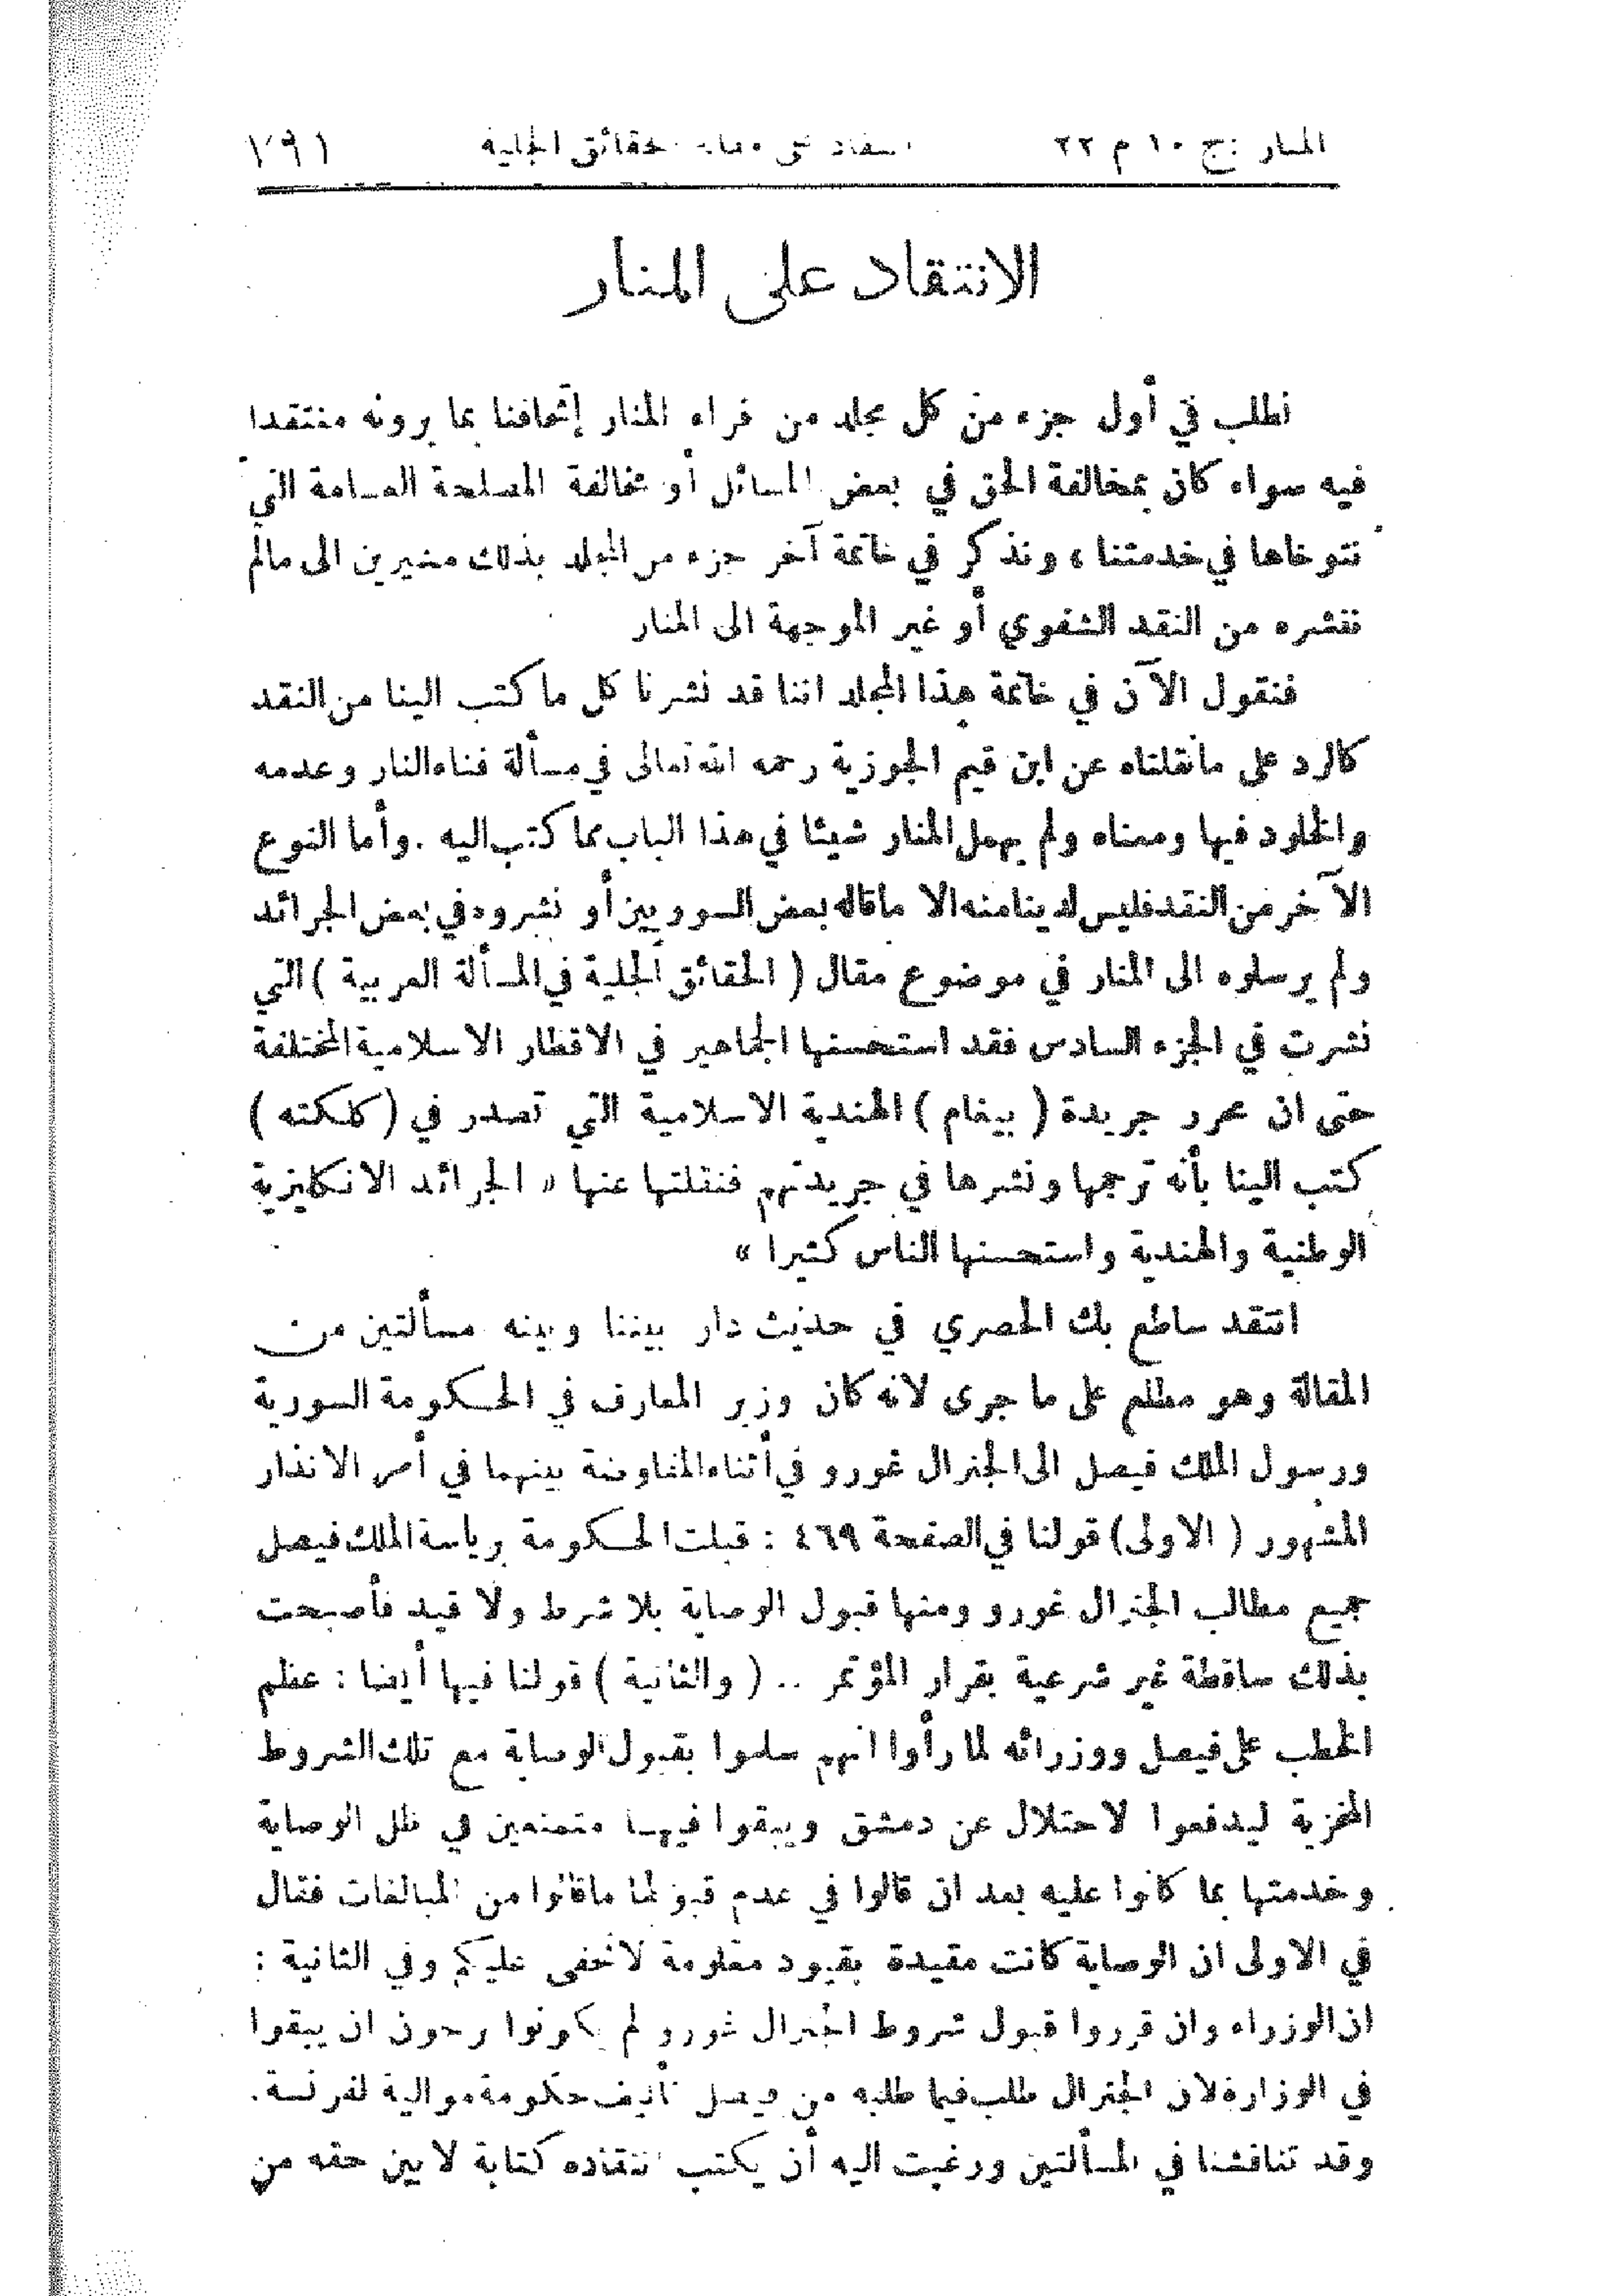 المنار: ج ١٠ م ٢٢ الحقائق الجلية ٧٩١
الانتقاد على المنار
نطلب في أول جزء من كل مجلد من قراء المنار إتحافنا بما يرونه منتقدا
فيه سواء كان بمخالفة الحق في بعض المسائل أو مخالفة المصلحة العامة التي
نتوخاها في خدمتنا، ونذكر في خاتمة آخر جزء من المجلد بذلك مشيرين الى مالم
ننشره من النقد الشفوي أو غير الموجهة الى المنار
فنقول الآن في خاتمة هذا المجلد اننا قد نشرنا كل ما كتب الينا من النقد
كالرد على مانقلناه عن ابن قيم الجوزية رحمه الله تعالى في مسألة فناء النار وعدمه
والخلود فيها ومعناه ولم يهمل المنار شيئا في هذا الباب مما كتب اليه . وأما النوع
الآخر من النقد فليس لدينا منه الا ماقاله بعض السوريين أو نشروه في بعض الجرائد
ولم يرسلوه الى المنار في موضوع مقال ( الحقائق الجلية في المسألة العربية ) التي
نشرت في الجزء السادس فقد استحسنها الجماهير في الاقطار الاسلامية المختلفة
حتى ان محرر جريدة ( بيغام ) الهندية الاسلامية التي تصدر في ( كلكته )
كتب الينا بأنه ترجمها ونشرها في جريدتهم فنقلتها عنها « الجرائد الانكليزية
الوطنية والهندية واستحسنها الناس كثيرا »
انتقد ساطع بك الحصري في حديث دار بيننا وبينه مسألتين من
المقالة وهو مطلع على ما جرى لانه كان وزير المعارف في الحكومة السورية
ورسول الملك فيصل الى الجنرال غورو في أثناء المفاوضة بينهما في أمر الانذار
المشهور ( الاولى ) قولنا في الصفحة ٤٦٩ : قبلت الحكومة برياسة الملك فيصل
جميع مطالب الجنرال غورو ومنها قبول الوصاية بلا شرط ولا قيد فأصبحت
بذلك ساقطة غير شرعية بقرار المؤتمر .. ( والثانية ) قولنا فيها أيضا : عظم
الخطب على فيصل ووزرائه لما رأوا انهم سلموا بقبول الوصاية مع تلك الشروط
المخزية ليدفعوا لاحتلال عن دمشق ويبقوا فيها متمتعين في ظل الوصاية
وخدمتها بما كانوا عليه بعد ان قالوا في عدم قبولها ماقالوا من المبالغات فقال
في الاولى ان الوصاية كانت مقيدة بقيود معلومة لاتخفى عليكم وفي الثانية :
ان الوزراء وان قرروا قبول شروط الجنرال غورو لم يكونوا يرجون ان يبقوا
في الوزارة لان الجنرال طلب فيما طلبه من فيصل تأليف حكومة موالية لفرنسة .
وقد تناقشنا في المسألتين ورغبت اليه أن يكتب انتقاده كتابة لابين حقه من